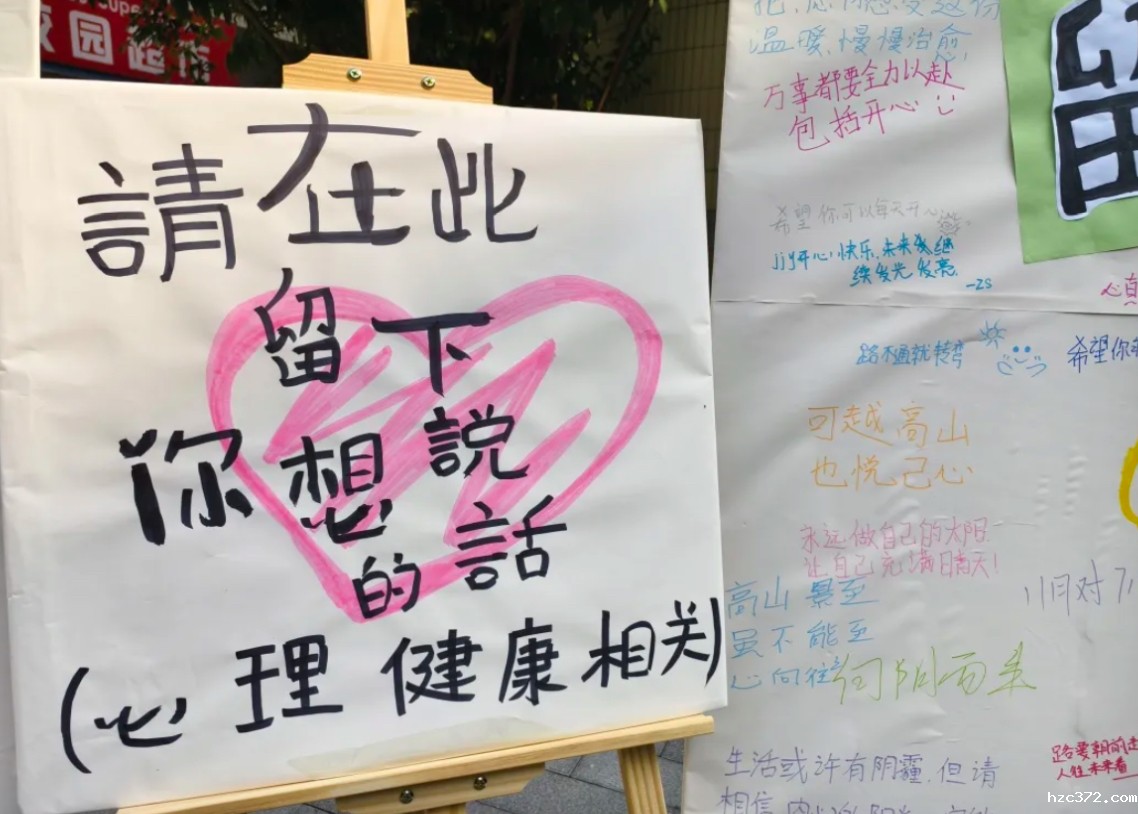 校园超市
請在此
留下
你想說
的話
(心理健康相关)
温暖,慢慢治愈
万事都要全力以赴
包括开心
希望你可以每天开心
jjy开心快乐,未来继
续发光发亮
-ZS
路不通就转弯
希望你
可越高山
也悦己心
永远做自己的太阳
让自己充满晴天!
高山景至
虽不能至
心向往
向阳而来
生活或许有阴霾,但请
相信
路要朝前走
人往未来看
留
hzc372.com